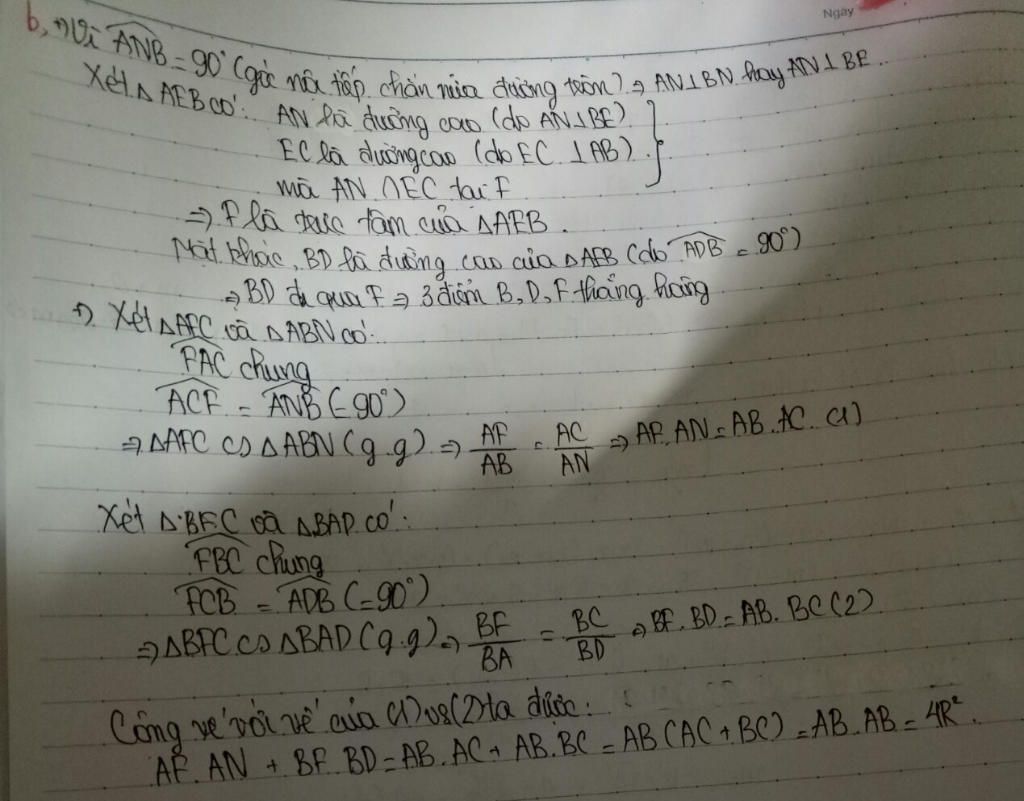 Ngày
b, +) Vì ANB = 90° (góc nội tiếp chắn nửa đường tròn) => AN⊥BN hay AN⊥BE.
Xét △AEB có: AN là đường cao (do AN⊥BE)
EC là đường cao (do EC ⊥AB)
mà AN ∩ EC tại F
=> F là trực tâm của △AEB.
Mặt khác, BD là đường cao của △AEB (do ADB = 90°)
=> BD đi qua F => 3 điểm B, D, F thẳng hàng
+) Xét △AFC và △ABN có:
FAC chung
ACF = ANB (=90°)
=> △AFC ∽ △ABN (g.g) => AF/AB = AC/AN => AF.AN = AB.AC (1)
Xét △BFC và △BAD có:
FBC chung
FCB = ADB (=90°)
=> △BFC ∽ △BAD (g.g) => BF/BA = BC/BD => BF.BD = AB.BC (2)
Cộng vế với vế của (1) và (2) ta được:
AF.AN + BF.BD = AB.AC + AB.BC = AB(AC+BC) = AB.AB = 4R².